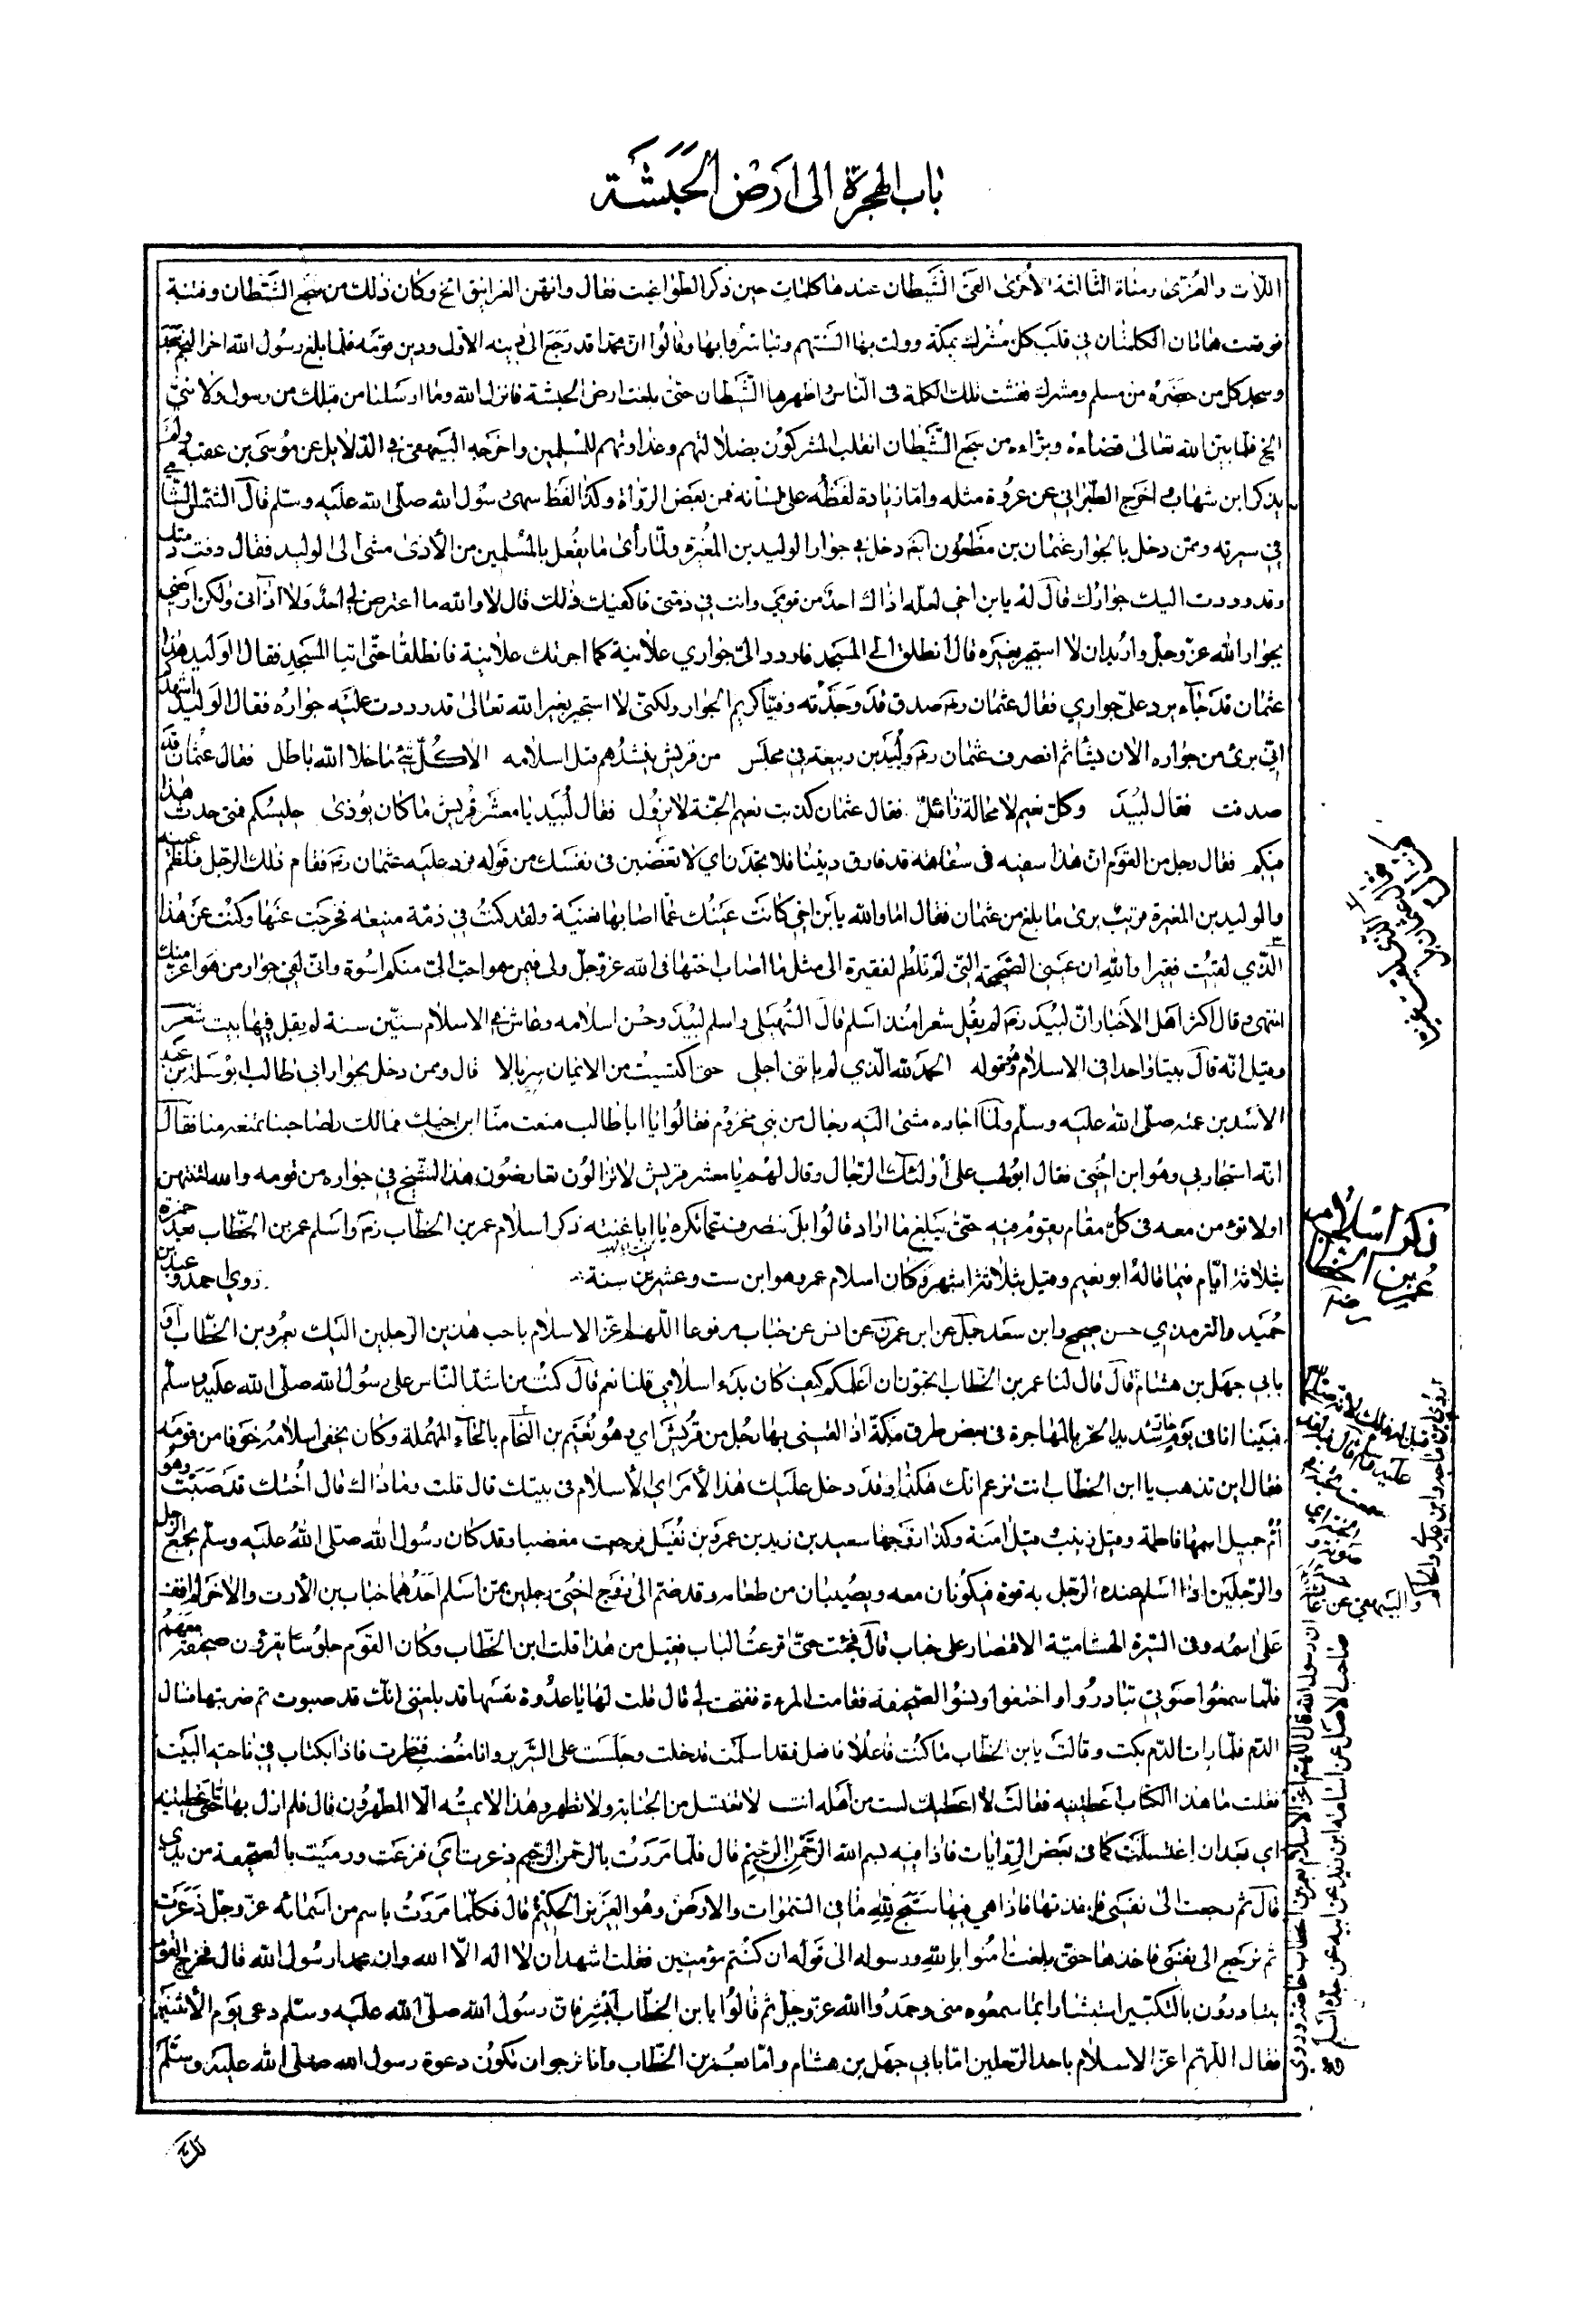 باب الهجرة الى ارض الحبشة
اللات والعزى ومناة الثالثة الأخرى القى الشيطان عندها كلمات حين ذكر الطواغيت فقال وانهن الغرانيق الخ وكان ذلك من سجع الشيطان وفتنة
فوقعت هاتان الكلمتان في قلب كل مشرك بمكة وولت بها السنتهم وتباشروا بها وقالوا ان محمدا قد رجع الى دينه الاول ودين قومه فلما بلغ رسول الله اخر النجم سجد
وسجد كل من حضره من مسلم ومشرك ففشت تلك الكلمة في الناس واظهرها الشيطان حتى بلغت ارض الحبشة فانزل الله وما ارسلنا من قبلك من رسول ولا نبي
الخ فلما بين الله تعالى قضاءه وبراءه من سجع الشيطان انقلب المشركون بضلالتهم وعداوتهم للمسلمين واخرجه البيهقي في الدلايل عن موسى بن عقبة ولم
يذكر ابن شهاب واخرج الطبراني عن عروة مثله واما زيادة لفظه على لسانه فمن بعض الرواة وكذا لفظ سهى رسول الله صلى الله عليه وسلم قال الشمس الشامي
في سيرته وممن دخل بالجوار عثمان بن مظعون انه دخل في جوار الوليد بن المغيرة ولما رأى ما يفعل بالمسلمين من الأذى مشى الى الوليد فقال وفت ذمتك
وقد وردت اليك جوارك قال له يا بن اخي لعله اذاك احد من قومي وانت في ذمتي فاكفيك ذلك قال لا والله ما اعترض لي احد ولا اذاني ولكن ارضى
بجوار الله عز وجل واريد ان لا استجير بغيره قال انطلق الى المسجد فاردد الي جواري علانية كما اجرتك علانية فانطلقا حتى اتيا المسجد فقال الوليد هذا
عثمان قد جاء يرد علي جواري فقال عثمان رضه صدق قد وجدته وفيا كريم الجوار ولكني لا استجير بغير الله تعالى قد رددت عليه جواره فقال الوليد اشهدكم
اني برئ من جواره الا ان يشأ ثم انصرف عثمان رضه ولبيد بن ربيعة في مجلس من قريش ينشدهم قبل اسلامه الا كل شئ ما خلا الله باطل فقال عثمان قد
صدقت فقال لبيد وكل نعيم لا محالة زائل فقال عثمان كذبت نعيم الجنة لا يزول فقال لبيد يا معشر قريش ما كان يوذى جليسكم فمتى حدث هذا
منكم فقال رجل من القوم ان هذا سفيه في سفاهة قد فارق ديننا فلا تجدن اي لا تغضبن في نفسك من قوله فرد عليه عثمان رضه فقام ذلك الرجل فلطم عينه
والوليد بن المغيرة قريب يرى ما بلغ من عثمان فقال اما والله يا بن اخي كانت عينك عما اصابها لغنية ولقد كنت في ذمة منيعة فخرجت عنها وكنت عن هذا
الذي لقيت فقيرا والله ان عيني الصحيحة التي لم تلطم لفقيرة الى مثل ما اصاب اختها في الله عز وجل ولي فيمن هو احب الي منكم اسوة واني لفي جوار من هو اعز منك
انتهى وقال اكثر اهل الأخبار ان لبيد رضه لم يقل شعرا منذ اسلم قال السهيلى واسلم لبيد وحسن اسلامه وعاش في الاسلام ستين سنة لم يقل فيها بيت شعر
وقيل انه قال بيتا واحدا في الاسلام وهو قوله الحمد لله الذي لم ياتني اجلي حتى اكتسيت من الايمان سربالا قال وممن دخل بجوار ابي طالب ابو سلمة بن عبد
الاسد بن عمته صلى الله عليه وسلم ولما اجاره مشى اليه رجال من بني مخزوم فقالوا يا ابا طالب منعت منا ابن اخيك فمالك ولصاحبنا تمنعه منا فقال
انه استجار بي وهو ابن اختي فقال ابو لهب على أولئك الرجال وقال لهم يا معشر قريش لا تزالون تعارضون هذا الشيخ في جواره من قومه والله لتنتهن
او لاقومن معه في كل مقام يقوم فيه حتى يبلغ ما اراد قالوا بل ننصرف عما تكره يا ابا عتبة ذكر اسلام عمر بن الخطاب رضه واسلم عمر بن الخطاب بعد حمزة
بثلاثة ايام فيما قاله ابو نعيم وقيل بثلاثة اشهر وكان اسلام عمر وهو ابن ست وعشرين سنة روى احمد وعبد بن
حميد والترمذي حسن صحيح وابن سعد عن ابن عمر عن انس عن خباب مرفوعا اللهم اعز الاسلام باحب هذين الرجلين اليك بعمر بن الخطاب او
بابي جهل بن هشام قال قال لنا عمر بن الخطاب اتحبون ان اعلمكم كيف كان بدء اسلامي قلنا نعم قال كنت من اشد الناس على رسول الله صلى الله عليه وسلم
فبينا انا في يوم شديد الحر بالهاجرة في بعض طرق مكة اذ القيني بها رجل من قريش اي وهو نعيم بن النحام بالحاء المهملة وكان يخفى اسلامه خوفا من قومه
فقال اين تذهب يا ابن الخطاب انت تزعم انك هكذا وقد دخل عليك هذا الأمر اي الأسلام في بيتك قال قلت وما ذاك قال اختك قد صبت وهو
أم جميل اسمها فاطمة وقيل زينب وقيل امنة وكذا زوجها سعيد بن زيد بن عمرو بن نفيل فرجعت مغضبا وقد كان رسول الله صلى الله عليه وسلم يجمع الرجل
والرجلين اذا اسلم عنده الرجل به قوة فيكونان معه ويصيبان من طعامه وقد ضم الى زوج اختي رجلين ممن اسلم احدهما خباب بن الأرت والاخر لم اقف
على اسمه وفى السيرة الهشامية الاقتصار على خباب قال فجئت حتى قرعت الباب فقيل من هذا قلت ابن الخطاب وكان القوم جلوسا يقرؤن صحيفة معهم
فلما سمعوا صوتي تبادروا واختفوا ونسوا الصحيفة فقامت المرءة ففتحت لي قال قلت لها يا عدوة نفسها قد بلغني انك قد صبوت ثم ضربتها فسال
الدم فلما رات الدم بكت وقالت يا بن الخطاب ما كنت فاعلا فافعل فقد اسلمت فدخلت وجلست على السرير وانا مغضب فنظرت فاذا بكتاب في ناحية البيت
فقلت ما هذا الكتاب اعطينيه فقالت لا اعطيك لست من اهله انت لا تغتسل من الجنابة ولا تطهر وهذا لا يمسه الا المطهرون قال فلم ازل بها حتى اعطتنيه
اي بعد ان اغتسلت كما في بعض الروايات فاذا فيه بسم الله الرحمن الرحيم قال فلما مررت بالرحمن الرحيم ذعرت اي فزعت ورميت بالصحيفة من يدي
قال ثم رجعت الى نفسي فاخذتها فاذا هي فيها سبح لله ما في السموات والارض وهو العزيز الحكيم قال فكلما مررت باسم من اسمائه عز وجل ذعرت
ثم ترجع الى نفسى فاخذها حتى بلغت امنوا بالله ورسوله الى قوله ان كنتم مؤمنين فقلت اشهد ان لا اله الا الله وان محمدا رسول الله قال فخرج القوم
يتبادرون بالتكبير استبشارا بما سمعوه منى وحمدوا الله عز وجل ثم قالوا يا بن الخطاب ابشر فان رسول الله صلى الله عليه وسلم دعى يوم الأثنين
فقال اللهم اعز الاسلام باحد الرجلين اما بابي جهل بن هشام واما بعمر بن الخطاب وانا نرجو ان تكون دعوة رسول الله صلى الله عليه وسلم
ذكر اسلام
عمر بن الخطاب
رضه